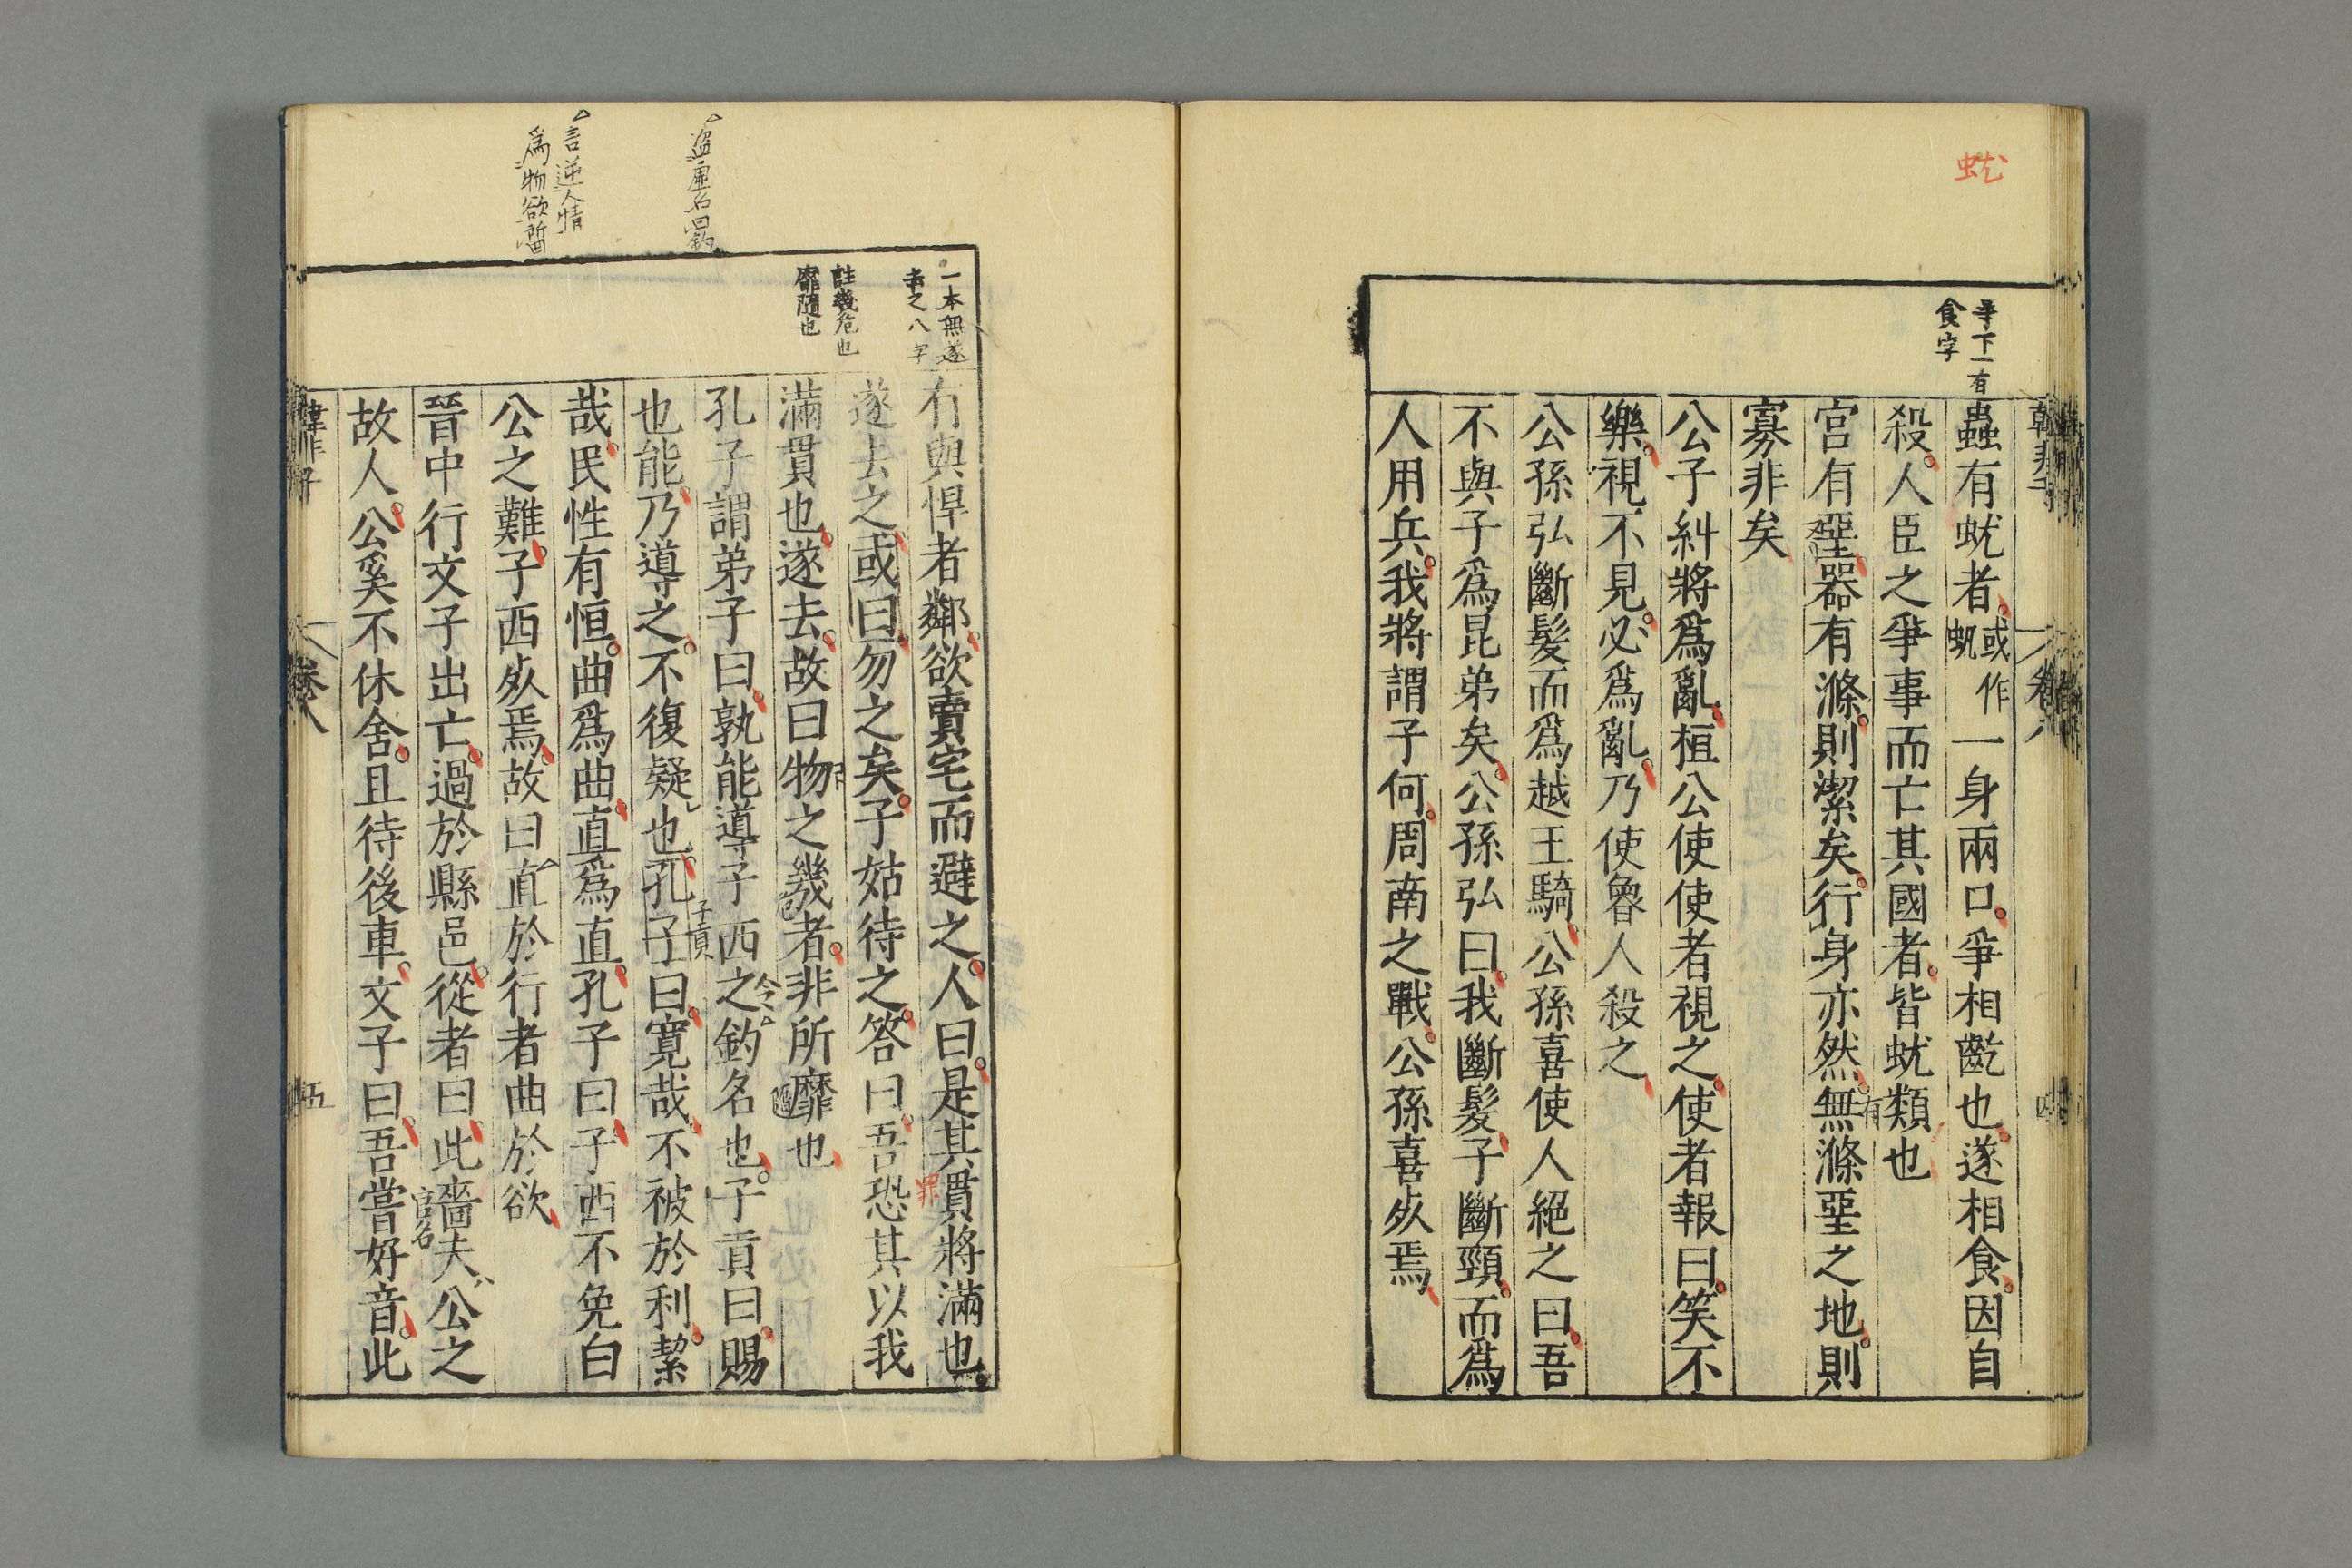 蚘
爭下一有
食字
蟲有蚘者或作蚖一身兩口爭相齕也遂相食因自
殺人臣之爭事而亡其國者皆蚘類也
宮有堊器有滌則潔矣行身亦然無滌堊之地則
有
寡非矣
公子糾將爲亂桓公使使者視之使者報曰笑不
樂視不見必爲亂乃使魯人殺之
公孫弘斷髮而爲越王騎公孫喜使人絕之曰吾
不與子爲昆弟矣公孫弘曰我斷髮子斷頸而爲
人用兵我將謂子何周南之戰公孫喜死焉
盜虛名曰釣
言逆人情
爲物欲所
一本無遂
去之八字
註幾危也
靡隨也
有與悍者鄰欲賣宅而避之人曰是其貫將滿也
罪
遂去之或曰勿之矣子姑待之答曰吾恐其以我
滿貫也遂去故曰物之幾者非所靡也
孔子謂弟子曰孰能導子西之釣名也子貢曰賜
今
也能乃導之不復疑也孔子曰寛哉不被於利絜
子貢
哉民性有恒曲爲曲直爲直孔子曰子西不免白
公之難子西死焉故曰直於行者曲於欲
晉中行文子出亡過於縣邑從者曰此嗇夫公之
官名
故人公奚不休舍且待後車文子曰吾嘗好音此
韓非子
卷八
五